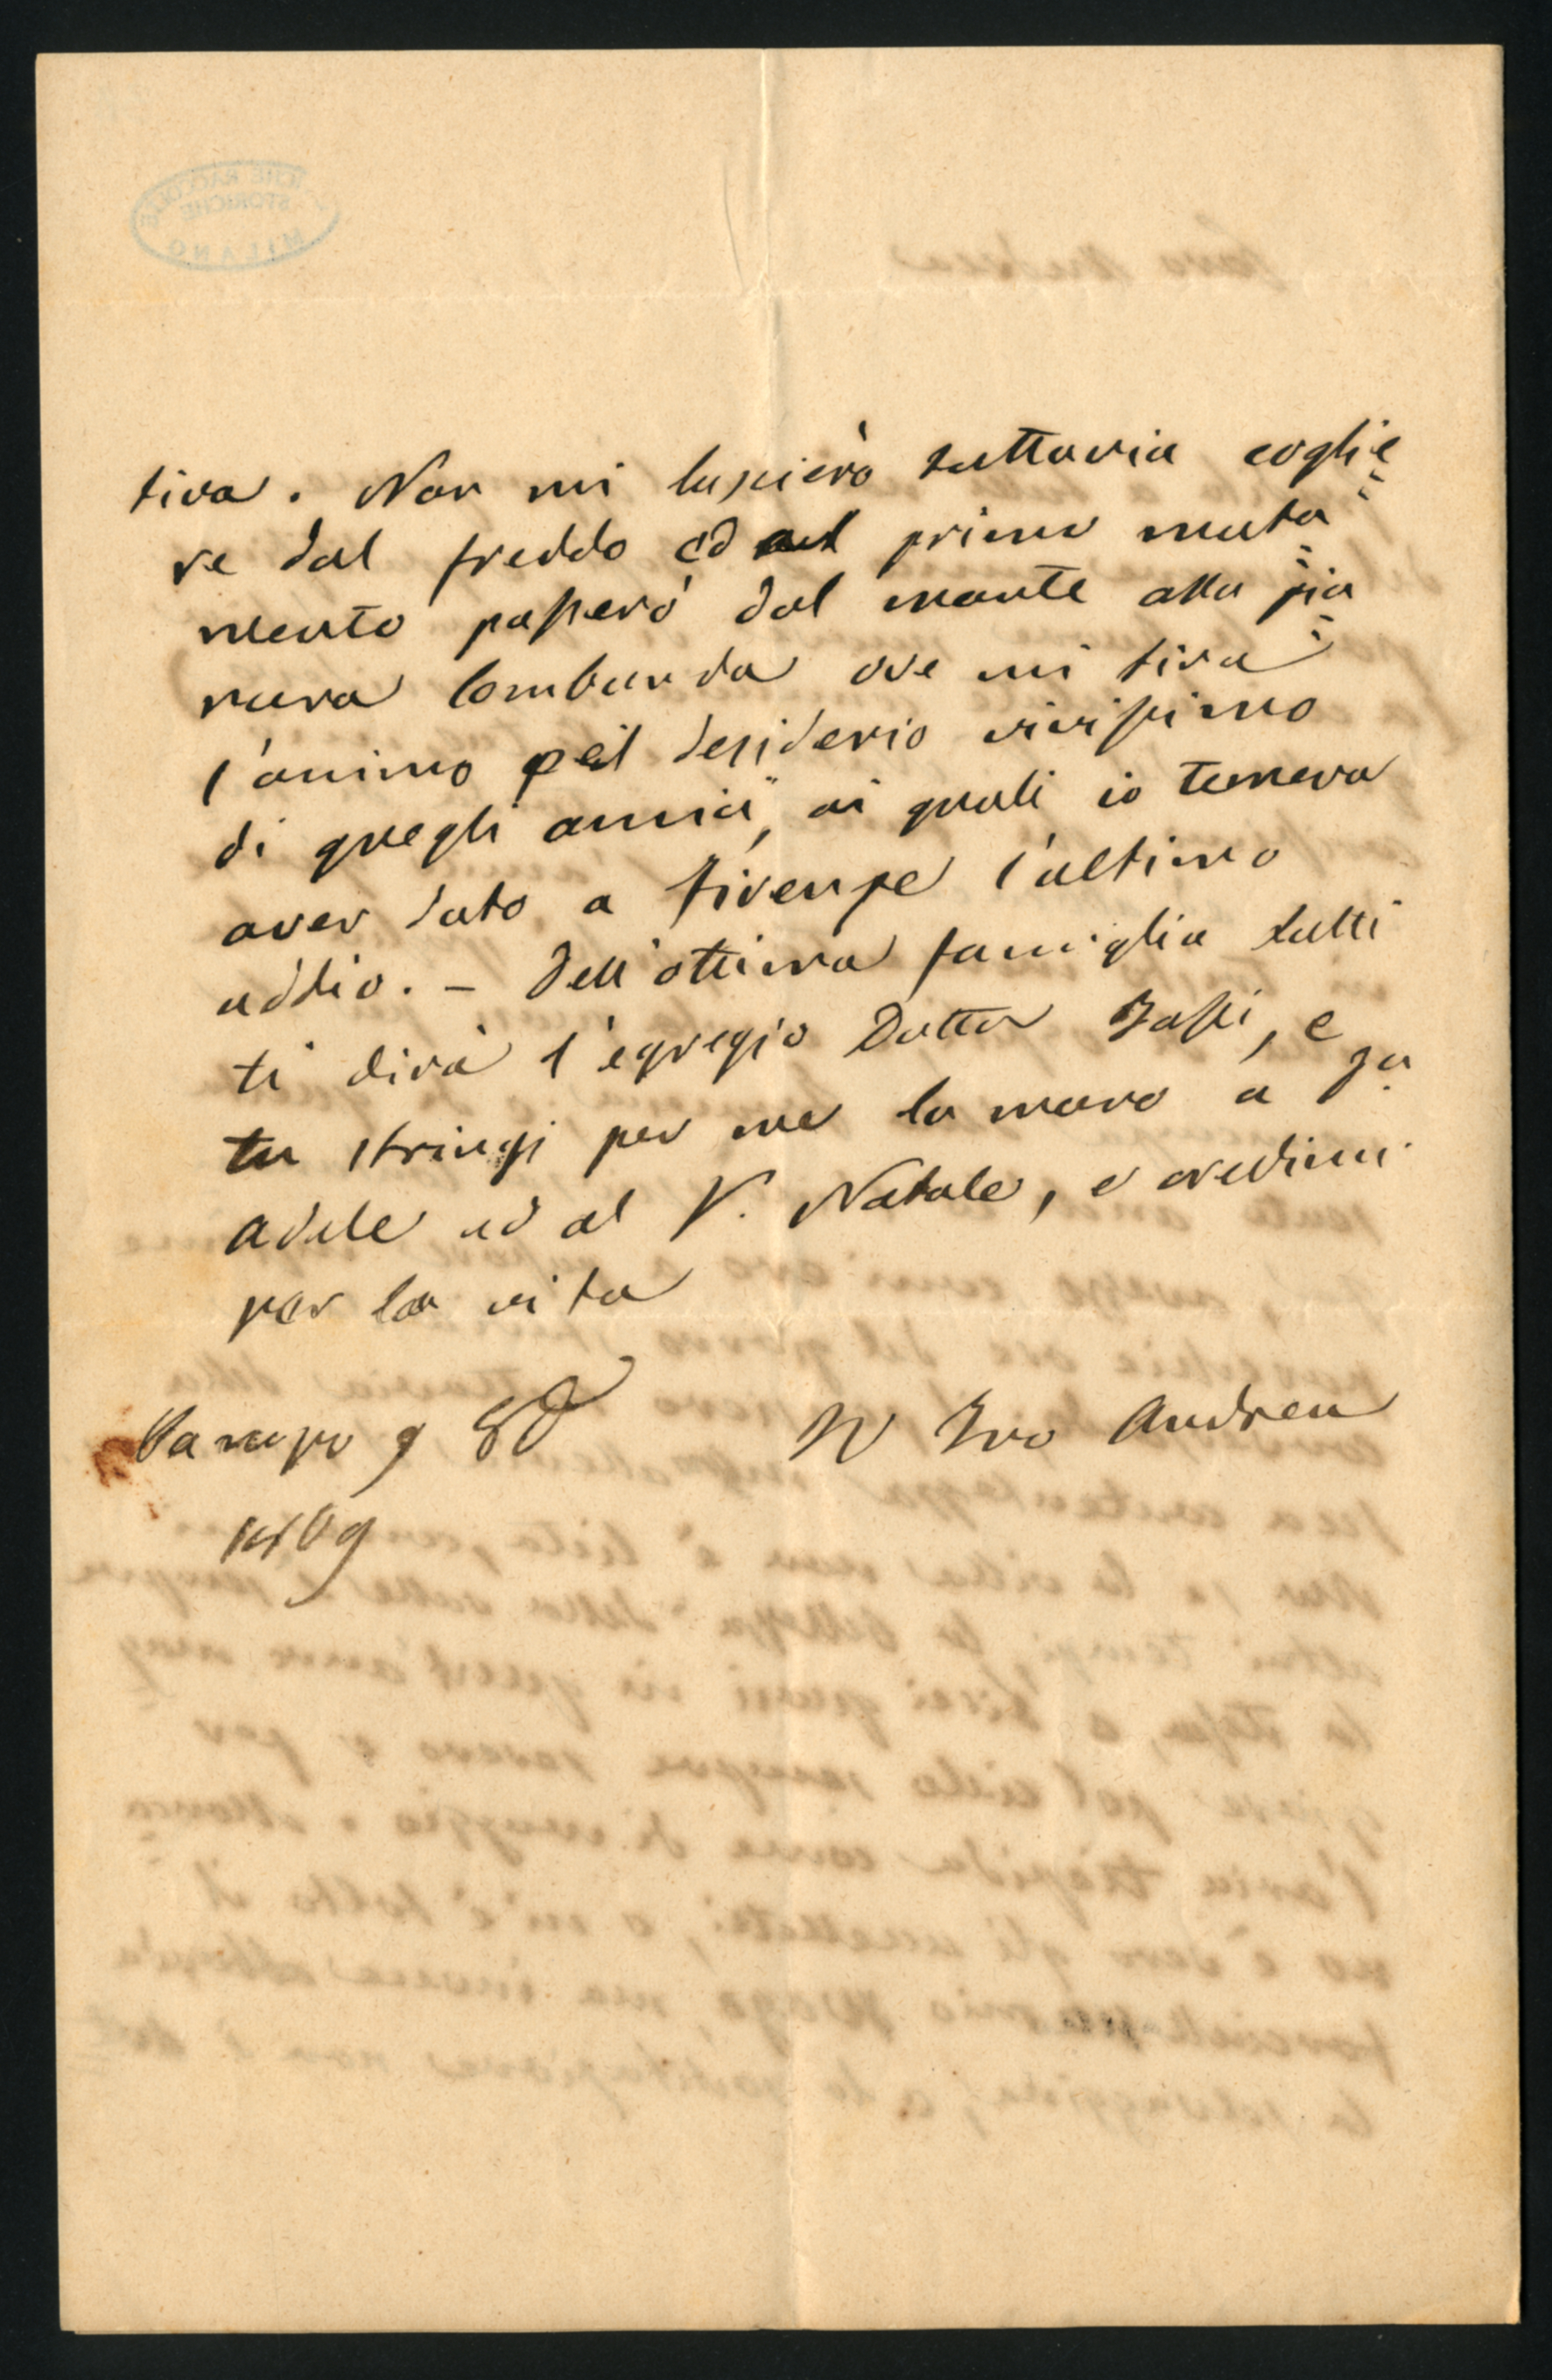 tiva. Non mi lascierò tuttavia coglie=
re dal freddo ed al primo muta=
mento passerò dal monte alla pia=
nura lombarda ove mi tira
l'animo pel desiderio vivissimo
di quegli amici, ai quali io temeva
aver dato a Firenze l'ultimo
addio. – Dell'ottima famiglia tutti
ti dirà l'egregio Dottor, e
tu stringi per me la mano a
adele ed al V. Natale, e credimi
per la vita
9
Il Tuo Andrea
1869
STORICHE
MILANO